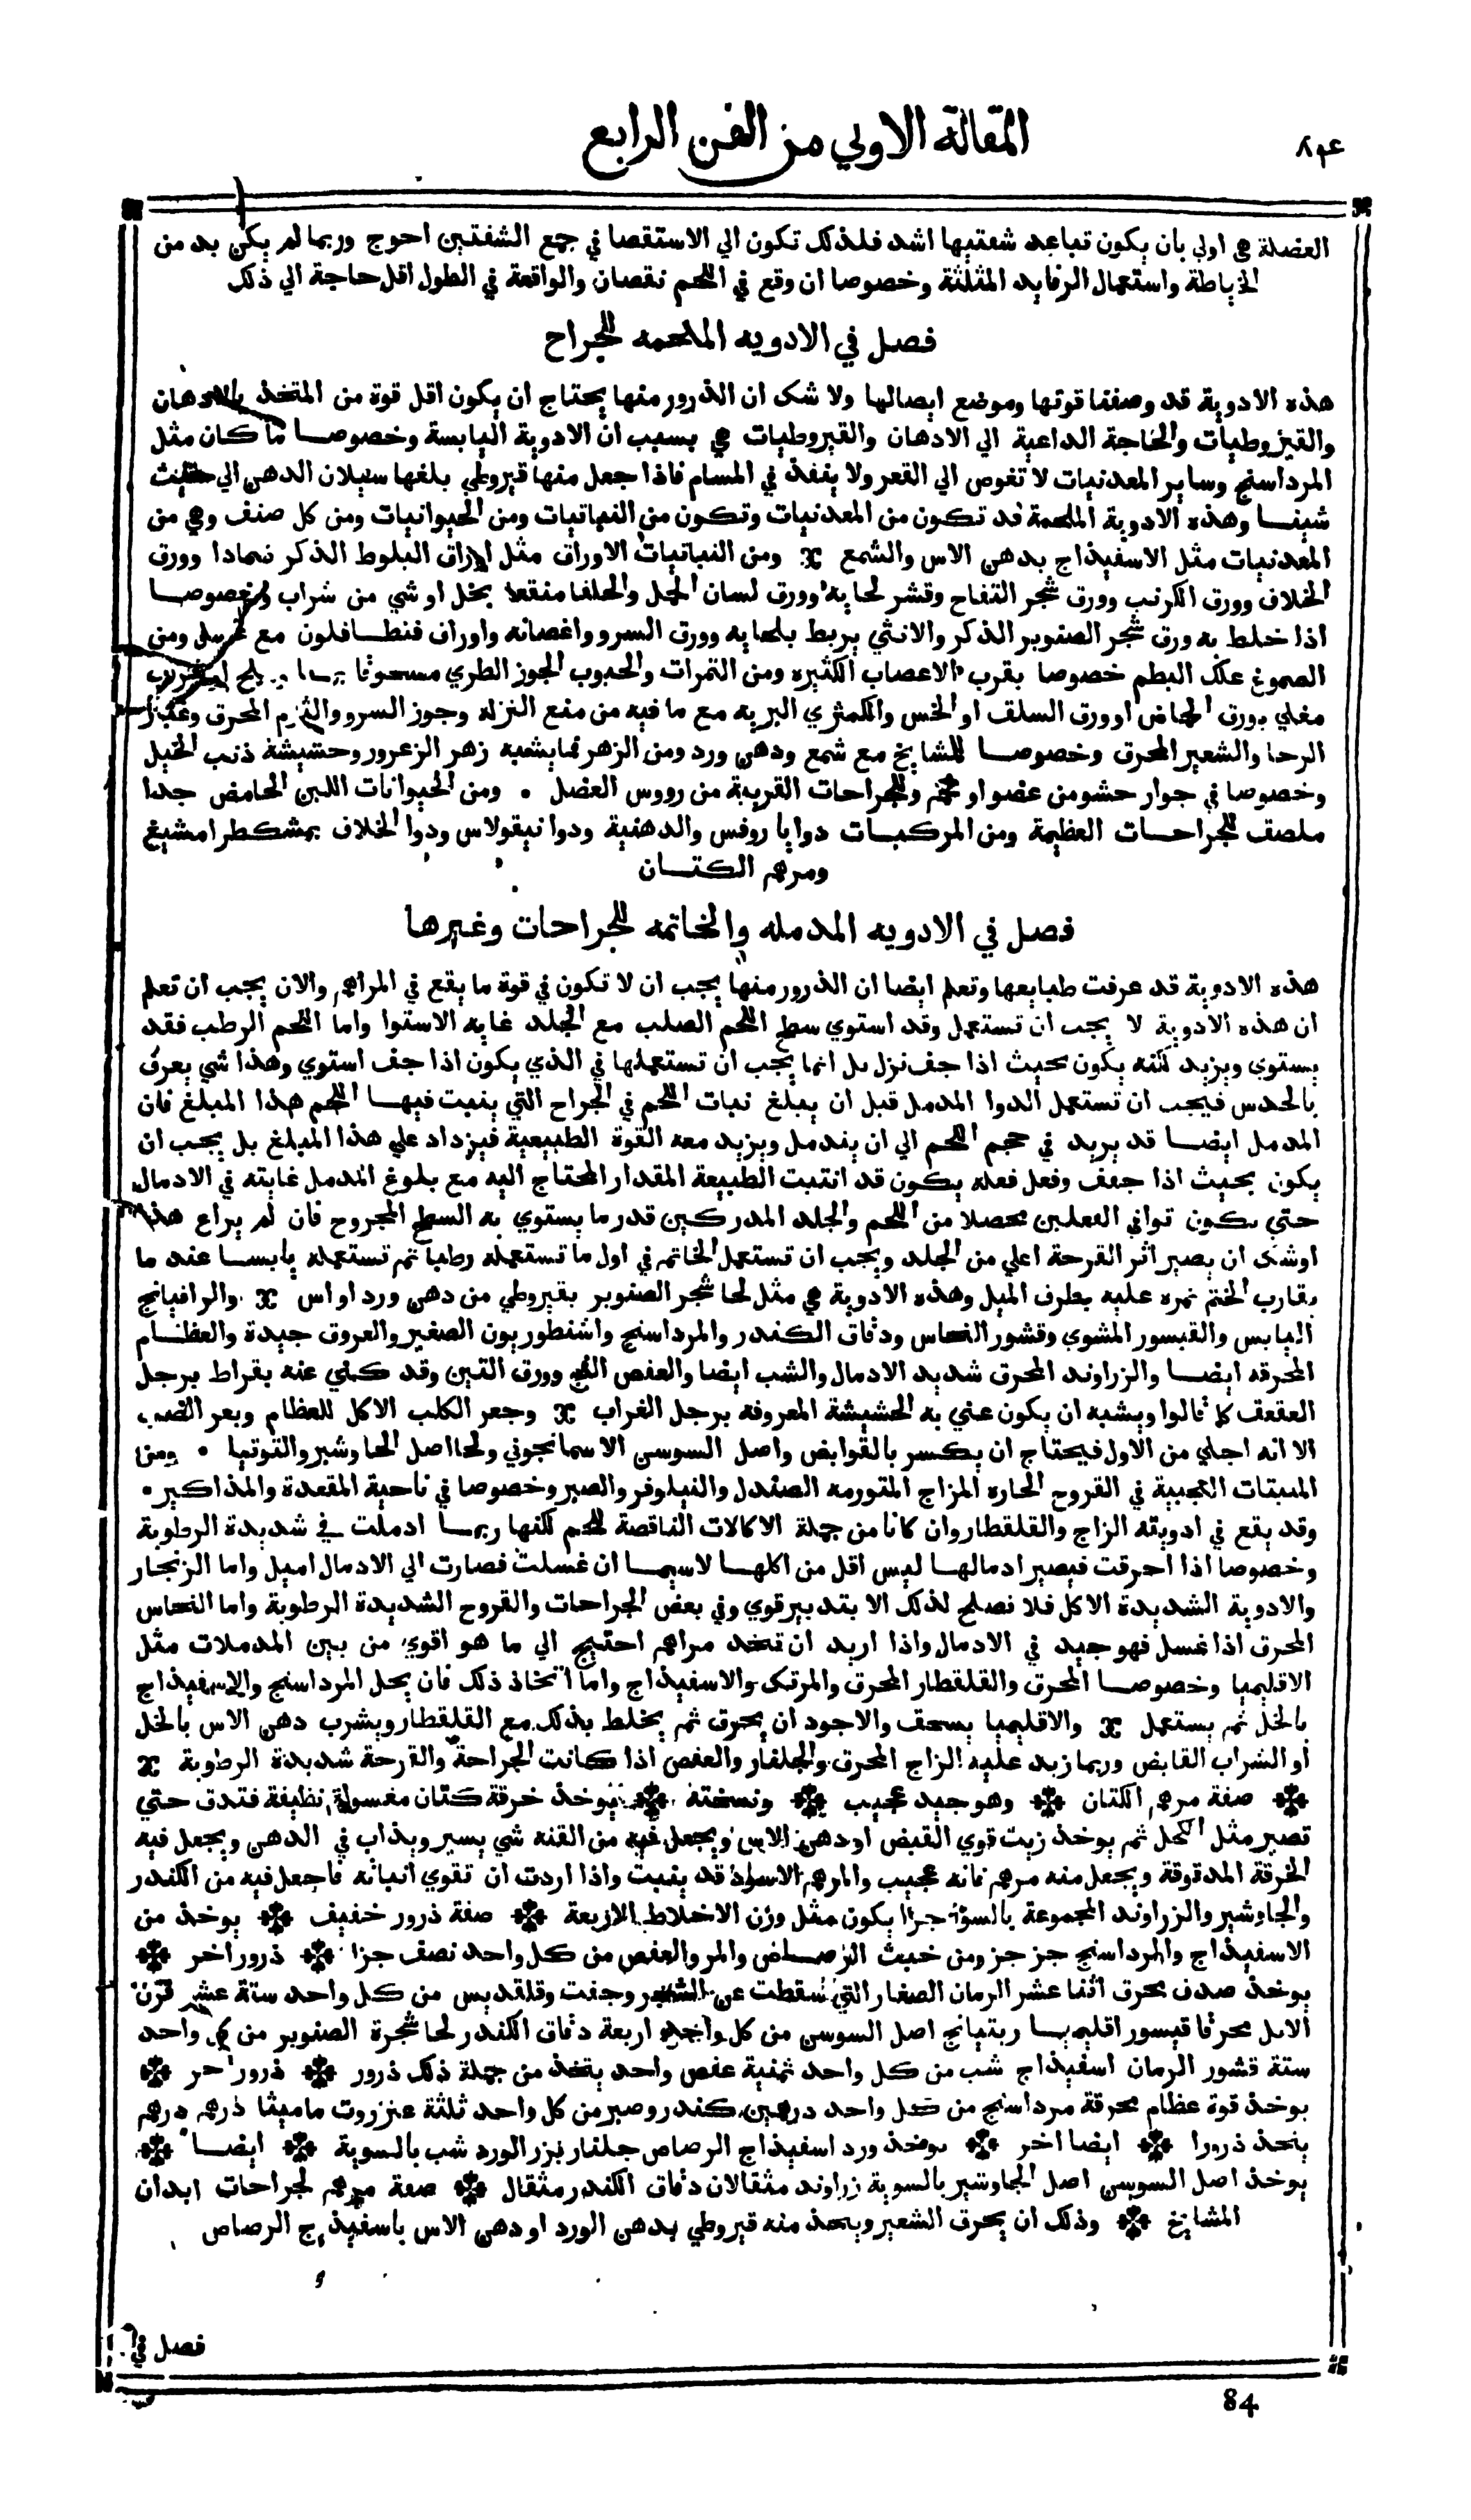 المقالة الاولي من الفن الرابع
العضلة هي اولي بان يكون تباعد شفتيها اشد فلذلك تكون الي الاستقصا في جمع الشفتين احوج وربما لم يكن بد من
الخياطة واستعمال الرفايد المثلثة وخصوصا ان وقع في اللحم نقصان والواقعة في الطول اقل حاجة الي ذلك
فصل في الادويه الملحمه للجراح
هذه الادوية قد وصفنا قوتها وموضع ايصالها ولا شك ان الذرور منها يحتاج ان يكون اقل قوة من المتخذ بالادهان
والقيروطيات والحاجة الداعية الي الادهان والقيروطيات هي بسبب ان الادوية اليابسة وخصوصا ما كان مثل
المرداسنج وساير المعدنيات لا تغوص الي القعر ولا ينفذ في المسام فاذا جعل منها قيروطي بلغها سيلان الدهن الي حيث
شينا وهذه الادوية الملحمة قد تكون من المعدنيات وتكون من النباتيات ومن الحيوانيات ومن كل صنف وهي من
المعدنيات مثل الاسفيذاج بدهن الاس والشمع ومن النباتيات الاوراق مثل اوراق البلوط الذكر ضمادا وورق
الخلاف وورق الكرنب وورق شجر التفاح وقشر لحايه وورق لسان الحمل والحلفا منقعا بخل او شي من شراب وخصوصا
اذا خلط به ورق شجر الصنوبر الذكر والانثي يربط بلحايه وورق السرو واغصانه واوراق فنطافلون مع عسل ومن
الصموغ علك البطم خصوصا بقرب الاعصاب الكثيره ومن الثمرات والحبوب الجوز الطري مسحوقا
مغلي بورق الحماض او ورق السلق او الخس والكمثري البريه مع ما فيه من منع النزله وجوز السرو والثوم المحرق وغبار
الرحا والشعير المحرق وخصوصا للمشايخ مع شمع ودهن ورد ومن الزهر فما يشبه زهر الزعرور وحشيشة ذنب الخيل
وخصوصا في جوار حشو من عضو او لحم وللجراحات القريبة من رووس العضل ٠ ومن الحيوانات اللبن الحامض جدا
ملصق للجراحات العظيمة ومن المركبات دوا ياروفس والدهنية ودوا نيقولاس ودوا الخلاف بمشكطرامشيغ
ومرهم الكتان
فصل في الادويه المدمله والخاتمه للجراحات وغيرها
هذه الادوية قد عرفت طبايعها وتعلم ايضا ان الذرور منها يجب ان لا تكون في قوة ما يقع في المراهم والان يجب ان تعلم
ان هذه الادوية لا يجب ان تستعمل وقد استوي سطح اللحم الصلب مع الجلد غايه الاستوا واما اللحم الرطب فقد
يستوي ويزيد لكنه يكون بحيث اذا جف نزل بل انما يجب ان تستعملها في الذي يكون اذا جف استوي وهذا شي يعرف
بالحدس فيجب ان تستعمل الدوا المدمل قبل ان يبلغ نبات اللحم في الجراح التي ينبت فيها اللحم هذا المبلغ فان
المدمل ايضا قد يريد في حجم اللحم الي ان يندمل ويزيد معه القوة الطبيعية فيزداد علي هذا المبلغ بل يجب ان
يكون بحيث اذا جفف وفعل فعله يكون قد انتبت الطبيعة المقدار المحتاج اليه مع بلوغ المدمل غايته في الادمال
حتي يكون توافي الفعلين محصلا من اللحم والجلد المدركين قدر ما يستوي به السطح المجروح فان لم يراع هذا
اوشك ان يصير اثر القرحة اعلي من الجلد ويجب ان تستعمل الخاتم في اول ما تستعمله رطبا ثم تستعمله يابسا عند ما
يقارب الختم نمره عليه بطرف الميل وهذه الادوية هي مثل لحا شجر الصنوبر بقيروطي من دهن ورد او اس والراتيانج
اليابس والقيسور المشوي وقشور النحاس ودقاق الكندر والمرداسنج واشنطوريون الصغير والعروق جيدة والعظام
المحرقه ايضا والزراوند المحرق شديد الادمال والشب ايضا والعفص الفج وورق التين وقد كني عنه بقراط برجل
العقعق كما قالوا ويشبه ان يكون عني به الحشيشة المعروفه برجل الغراب وجعر الكلب الاكل للعظام وبعر الضب
الا انه اجلي من الاول فيحتاج ان يكسر بالقوابض واصل السوسن الاسمانجوني ولحا اصل الجاوشير والتوتيا ٠ ومن
المنبتات العجيبة في القروح الحاره المزاج المتورمه الصندل والنيلوفر والصبر وخصوصا في ناحية المقعدة والمذاكير ٠
وقد يقع في ادويته الزاج والقلقطار وان كانا من جملة الاكالات الناقصة للحم لكنها ربما ادملت في شديدة الرطوبة
وخصوصا اذا احرقت فيصير ادمالها ليس اقل من اكلها لاسيما ان غسلت فصارت الي الادمال اميل واما الزنجار
والادوية الشديدة الاكل فلا نصلح لذلك الا بتدبير قوي وفي بعض الجراحات والقروح الشديدة الرطوبة واما النحاس
المحرق اذا غسل فهو جيد في الادمال واذا اريد ان تتخد مراهم احتيج الي ما هو اقوي من بين المدملات مثل
الاقليميا وخصوصا المحرق والقلقطار المحرق والمرتك والاسفيذاج واما اتخاذ ذلك فان يحل المرداسنج والاسفيذاج
بالخل ثم يستعمل والاقليميا يسحق والاجود ان يحرق ثم يخلط بذلك مع القلقطار ويشرب دهن الاس بالخل
او الشراب القابض وربما زيد عليه الزاج المحرق والجلنار والعفص اذا كانت الجراحة والقرحة شديدة الرطوبة
صفة مرهم الكتان وهو جيد عجيب ونسخته يوخذ خرقة كتان مغسولة نظيفة فتدق حتي
تصير مثل الكحل ثم يوخذ زيت قوي القبض او دهن الاس ويجعل فيه من القنه شي يسير ويذاب في الدهن ويجعل فيه
الخرقة المدقوقة ويجعل منه مرهم فانه عجيب والمرهم الاسود قد ينبت واذا اردت ان تقوي انباته فاجعل فيه من الكندر
والجاوشير والزراوند المجموعة بالسوية جزا يكون مثل وزن الاخلاط الاربعة صفة ذرور خفيف يوخذ من
الاسفيذاج والمرداسنج جز جز ومن خبث الرصاص والمر والعفص من كل واحد نصف جزا ذرور اخر
يوخذ صدف محرق اثنا عشر الرمان الصغار التي سقطت عن الشجر وجفت وقلقديس من كل واحد ستة عشر قرن
الايل محرقا قيسور اقليميا ريتيانج اصل السوسن من كل واحد اربعة دقاق الكندر لحا شجرة الصنوبر من كل واحد
ستة قشور الرمان اسفيذاج شب من كل واحد ثمنية عفص واحد يتخذ من جملة ذلك ذرور ذرور اخر
يوخذ قوة عظام محرقة مرداسنج من كل واحد درهمين كندر وصبر من كل واحد ثلثة عنزروت ماميثا درهم درهم
يتخذ ذرورا ايضا اخر يوخذ ورد اسفيذاج الرصاص جلنار بزر الورد شب بالسوية ايضا
يوخذ اصل السوسن اصل الجاوشير بالسوية زراوند مثقالان دقاق الكندر مثقال صفة مرهم لجراحات ابدان
المشايخ وذلك ان يحرق الشعير ويتخذ منه قيروطي بدهن الورد او دهن الاس باسفيذاج الرصاص
فصل في
84